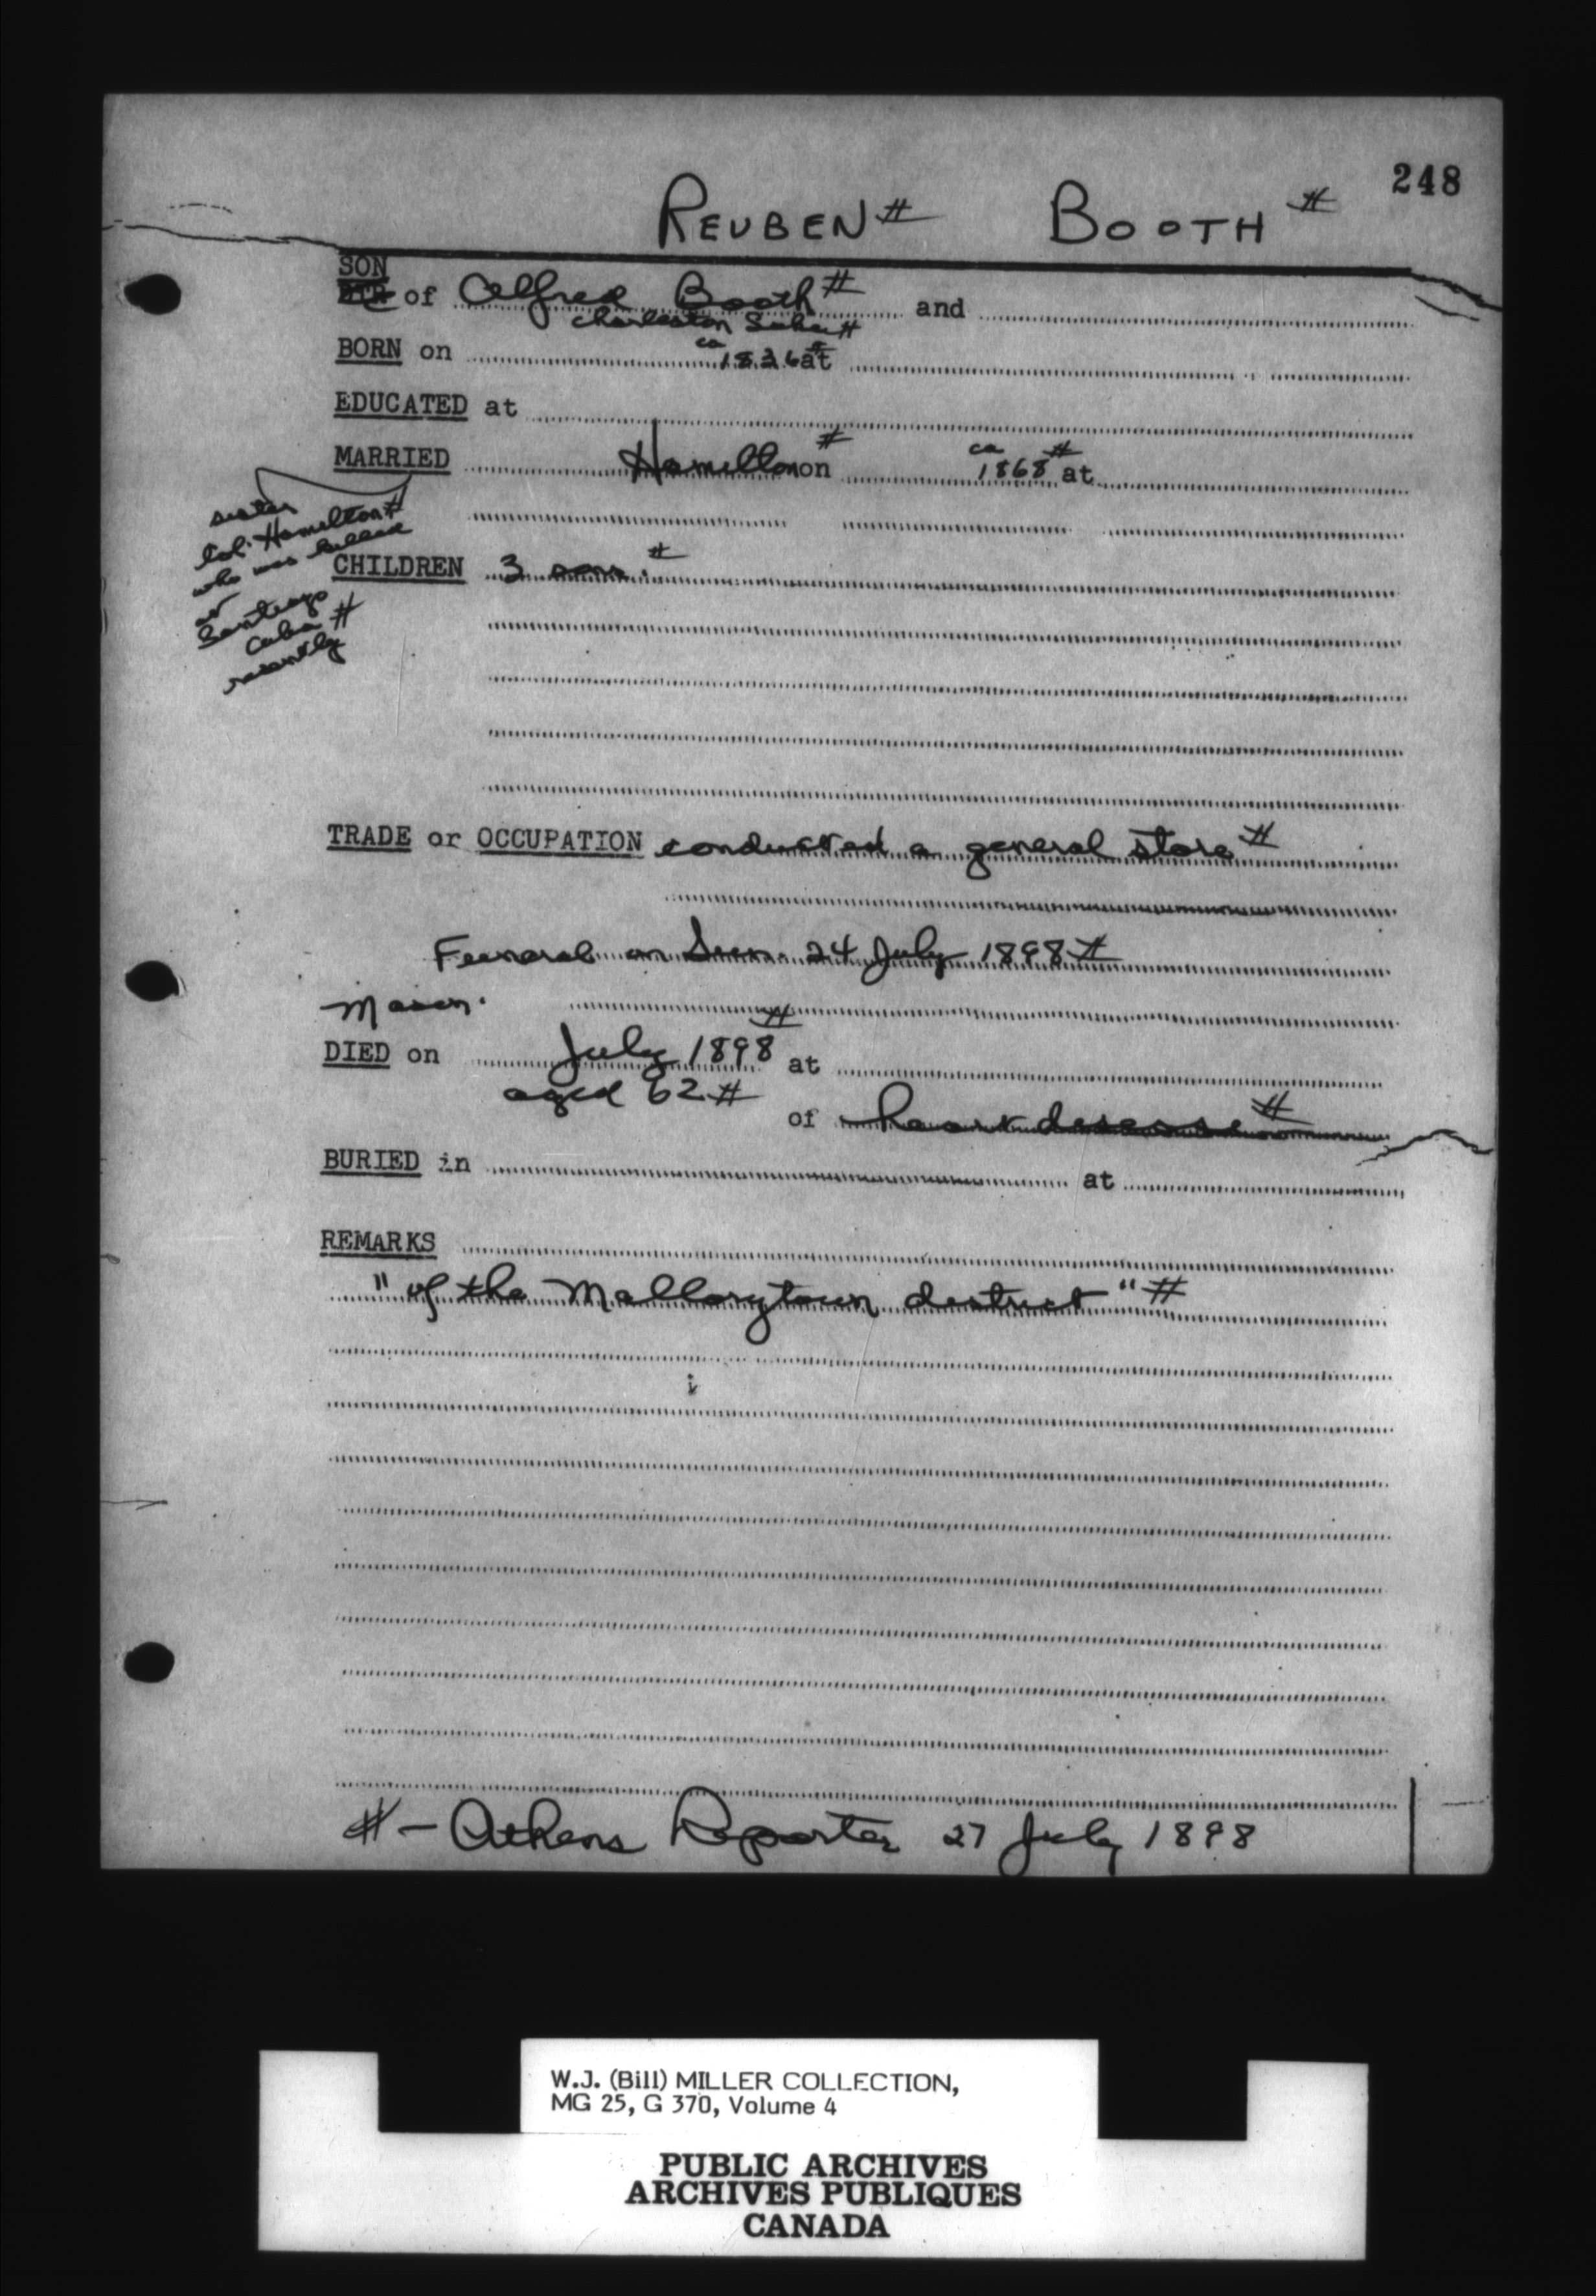 248
REUBEN # BOOTH #
SON
DTR of Alfred Booth # and
Charleston Lake #
BORN on ca 1836 # at
EDUCATED at
MARRIED Hamilton # on ca 1868 # at
sister
Col. Hamilton #
who was killed
at
Santiago
Cuba #
recently
CHILDREN 3 sons. #
TRADE or OCCUPATION conducted a general store #
Funeral on Sun. 24 July 1898 #
Mason.
DIED on July 1898 # at
aged 62 #
of heart desease #
BURIED in at
REMARKS
"of the Mallorytown district" #
# - Athens Reporter 27 July 1898
W.J. (Bill) MILLER COLLECTION,
MG 25, G 370, Volume 4
PUBLIC ARCHIVES
ARCHIVES PUBLIQUES
CANADA